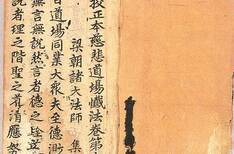 校正本慈悲道場懺法卷第
梁朝諸大法師集
日道場同業大衆夫至德渺
無言無說然言者德之詮道
說者理之階聖之